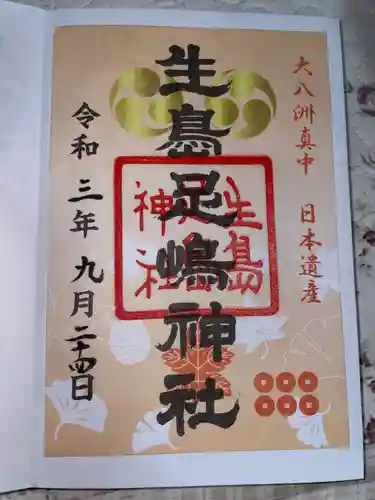 大八洲真中 日本遺産
生島足嶋神社
生島足島神社
令和三年九月二十四日